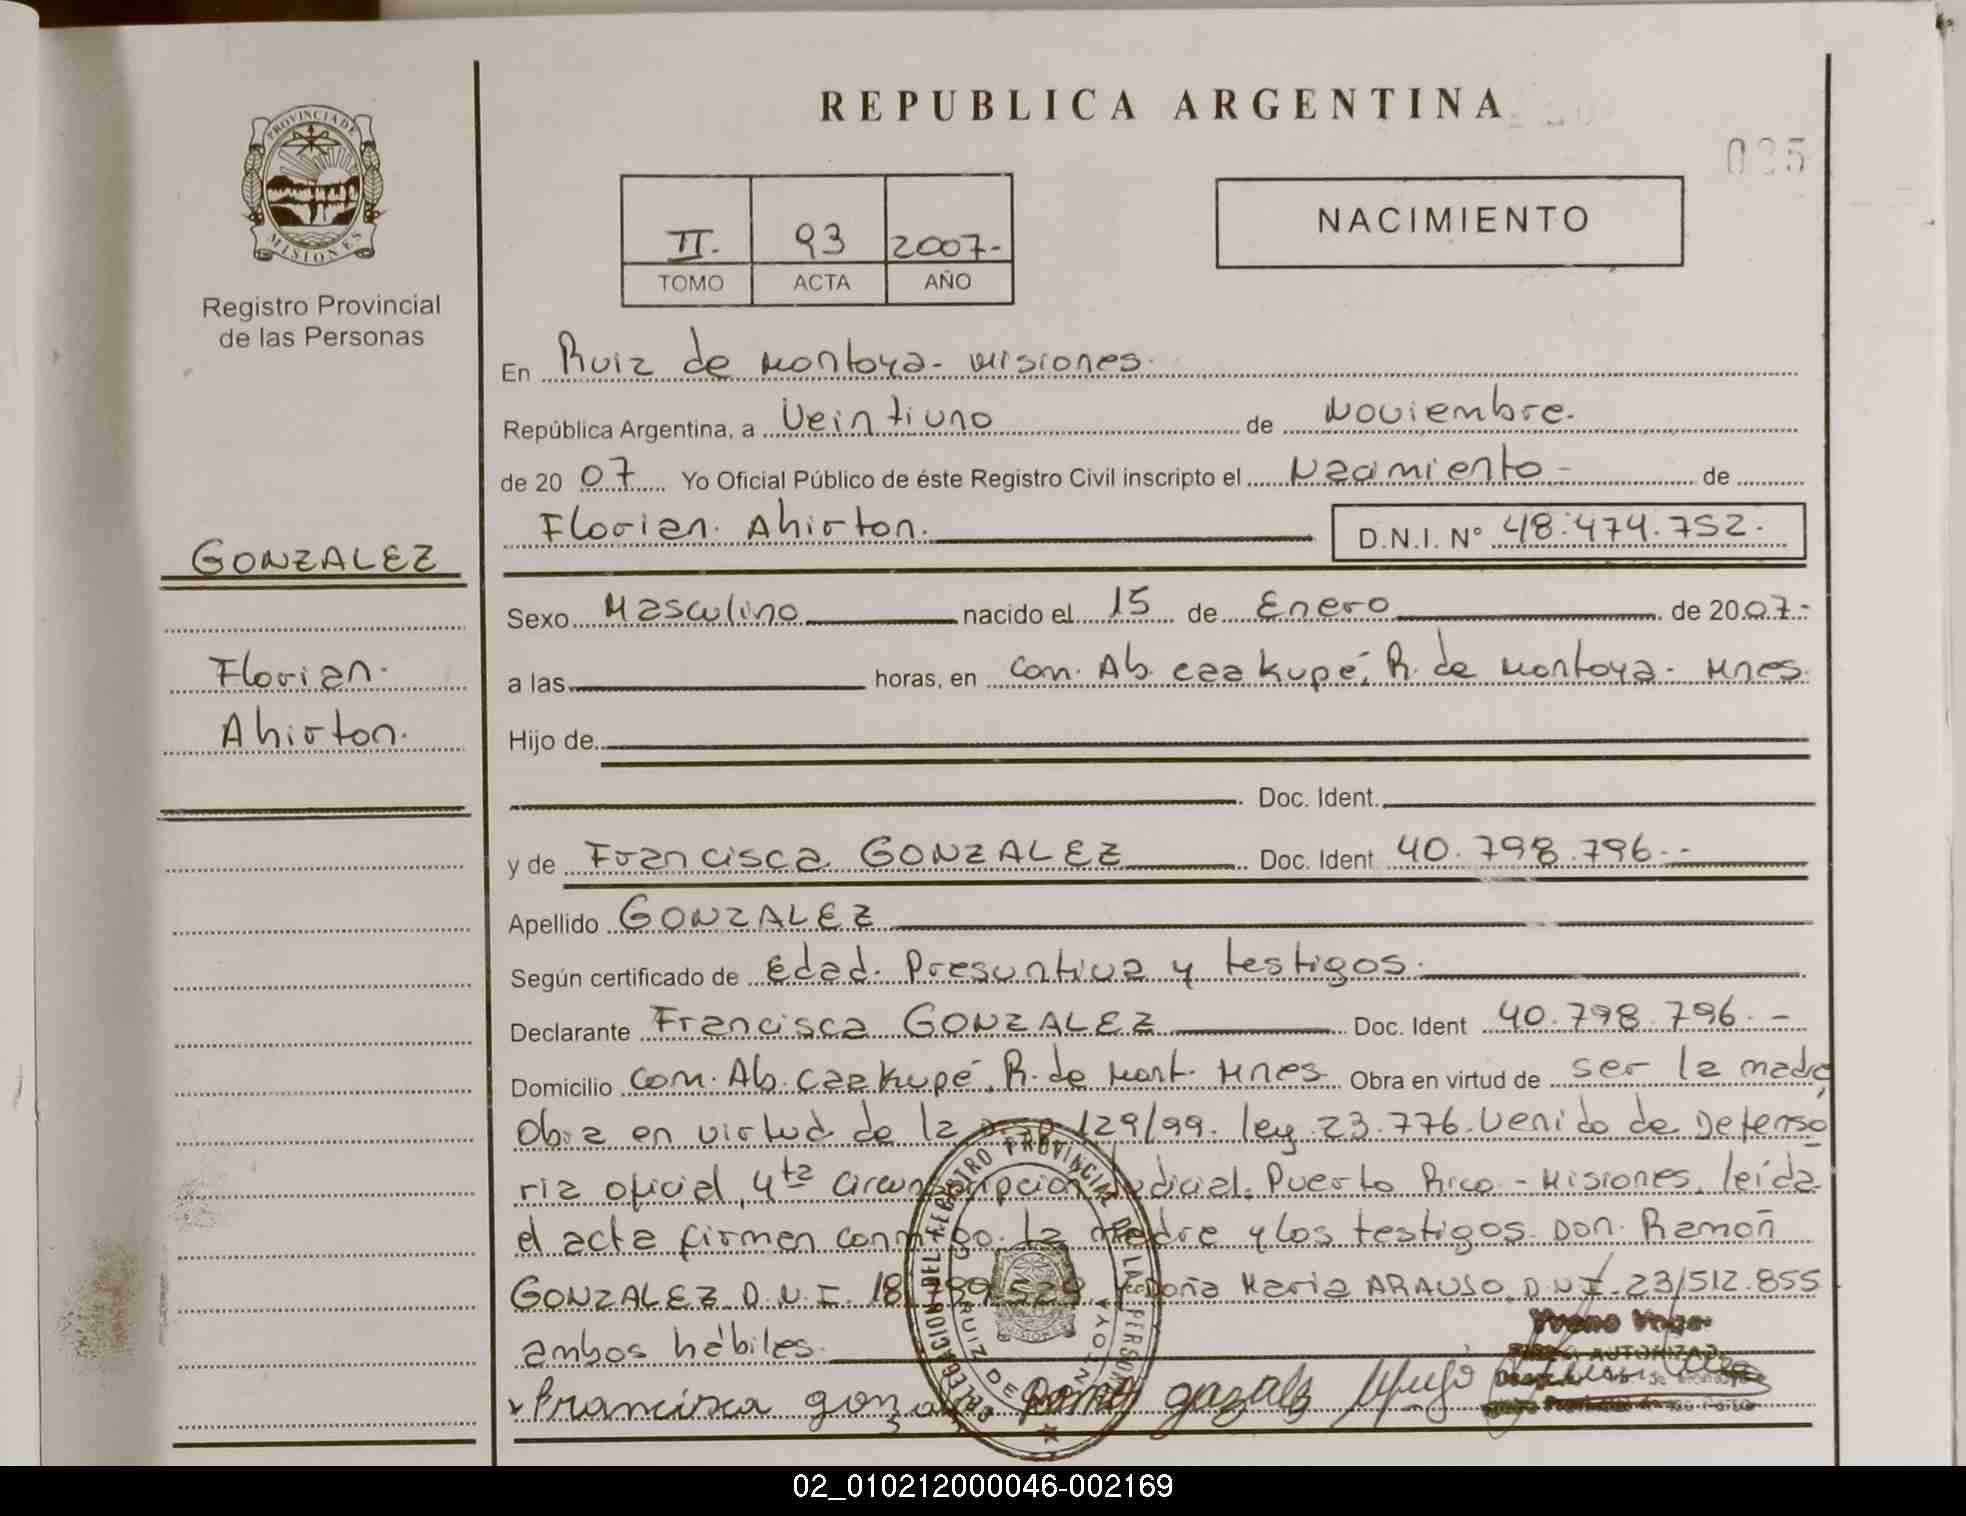 REPUBLICA ARGENTINA
PROVINCIA DE
MISIONES
Registro Provincial
de las Personas
II. 93 2007-
TOMO ACTA AÑO
NACIMIENTO
En Ruiz de Montoya - Misiones.
República Argentina, a Veintiuno de Noviembre.
de 20 07 Yo Oficial Público de éste Registro Civil inscripto el Nacimiento - de
Florian Ahirton. D.N.I. Nº 48.474.752.
GONZALEZ
Florian.
Ahirton.
Sexo Masculino nacido el 15 de Enero de 2007.-
a las horas, en Com. Ab. Caakupé, R. de Montoya - Mnes.
Hijo de
Doc. Ident.
y de Francisca GONZALEZ Doc. Ident 40.798.796.-
Apellido GONZALEZ
Según certificado de Edad. Presuntiva y testigos.
Declarante Francisca GONZALEZ Doc. Ident 40.798.796.-
Domicilio Com. Ab. Caakupé, R. de Mont. Mnes. Obra en virtud de ser la madre
Obra en virtud de la 129/99. ley 23.776. Venido de Defenso
ria oficial, 4ta Circunscripción Judicial. Puerto Rico - Misiones, leída
el acta firman conmigo. la madre y los testigos Don. Ramón
GONZALEZ D.N.I. y Doña Maria ARAUJO D.N.I. 23/512.855
ambos hábiles.
DELEGACION DEL REGISTRO PROVINCIAL DE LAS PERSONAS
RUIZ DE MONTOYA
Francisca
02_010212000046-002169